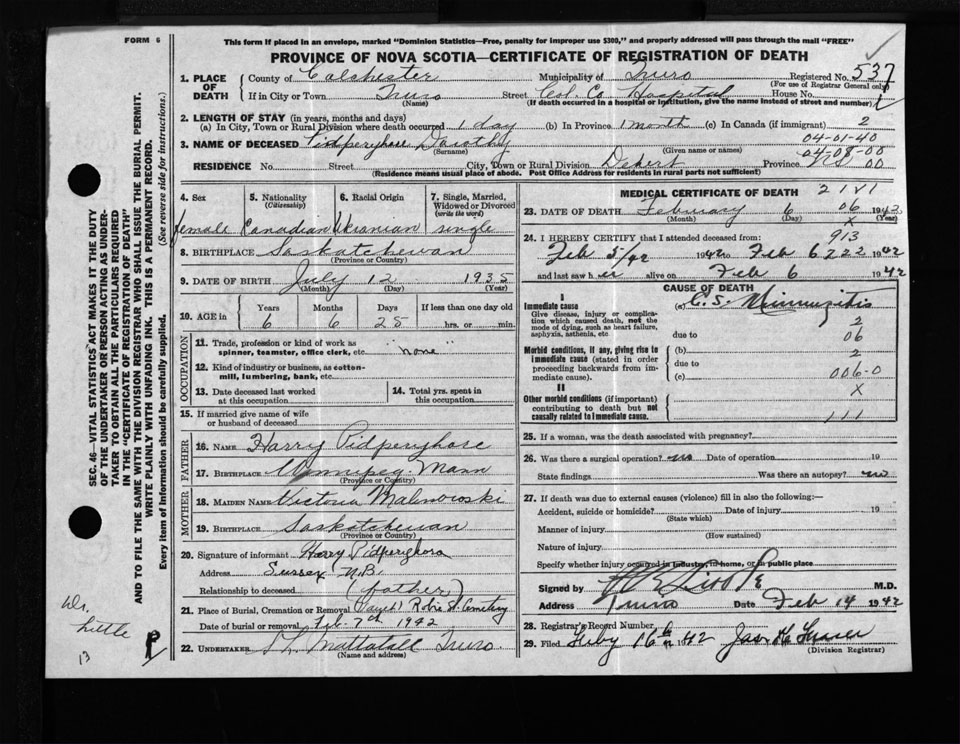 FORM 6
This form if placed in an envelope, marked "Dominion Statistics—Free, penalty for improper use $300," and properly addressed will pass through the mail "FREE"
PROVINCE OF NOVA SCOTIA—CERTIFICATE OF REGISTRATION OF DEATH
1. PLACE OF DEATH County of Colchester Municipality of Truro Registered No. 537
(For use of Registrar General only)
If in City or Town Truro Street Col. Co. Hospital House No.
(If death occurred in a hospital or institution, give the name instead of street and number)
2. LENGTH OF STAY (in years, months and days)
(a) In City, Town or Rural Division where death occurred 1 day (b) In Province 1 month (c) In Canada (if immigrant) 2
04-01-40
3. NAME OF DECEASED Pidperyhore Dorothy 04-08-00
(Surname) (Given name or names)
RESIDENCE No. Street City, Town or Rural Division Debert Province NS 00
(Residence means usual place of abode. Post Office Address for residents in rural parts not sufficient)
4. Sex 5. Nationality (Citizenship) 6. Racial Origin 7. Single, Married, Widowed or Divorced (write the word)
female Canadian Ukranian single
8. BIRTHPLACE Saskatchewan
(Province or Country)
9. DATE OF BIRTH July 12 1935
(Month) (Day) (Year)
10. AGE in Years Months Days If less than one day old
6 6 25 hrs. or min.
OCCUPATION
11. Trade, profession or kind of work as spinner, teamster, office clerk, etc. "none"
12. Kind of industry or business, as cotton-mill, lumbering, bank, etc.
13. Date deceased last worked at this occupation
14. Total yrs. spent in this occupation
15. If married give name of wife or husband of deceased
FATHER
16. NAME Harry Pidperyhore
17. BIRTHPLACE Winnipeg Mann
(Province or Country)
MOTHER
18. MAIDEN NAME Victoria Malinowski
19. BIRTHPLACE Saskatchewan
(Province or Country)
20. Signature of informant Harry Pidperyhora
Address Sussex N.B.
Relationship to deceased (father)
21. Place of Burial, Cremation or Removal Robie St. Cemetery
Date of burial or removal Feb. 7th 1942
22. UNDERTAKER Mattatall Truro.
(Name and address)
MEDICAL CERTIFICATE OF DEATH 2181
23. DATE OF DEATH February 6 06 1942
(Month) (Day) (Year)
X
913
24. I HEREBY CERTIFY that I attended deceased from:
Feb 5/42 1942 to Feb 6 222 1942
and last saw her alive on Feb 6 1942
CAUSE OF DEATH
I
Immediate cause (a) C. S. Miningitis
Give disease, injury or complication which caused death, not the mode of dying, such as heart failure, asphyxia, asthenia, etc.
2
due to
06
Morbid conditions, if any, giving rise to immediate cause (stated in order proceeding backwards from immediate cause).
(b)
2
due to
(c) 006-0
II
X
Other morbid conditions (if important) contributing to death but not causally related to immediate cause.
111
25. If a woman, was the death associated with pregnancy?
26. Was there a surgical operation? no Date of operation 19
State findings Was there an autopsy? no
27. If death was due to external causes (violence) fill in also the following:—
Accident, suicide or homicide? Date of injury 19
(State which)
Manner of injury
(How sustained)
Nature of injury
Specify whether injury occurred in industry, in home, or in public place
Signed by M.D.
Address Truro Date Feb 14 1942
28. Registrar's Record Number
29. Filed Feby 16th 1942 Jas. H.
(Division Registrar)
SEC. 46—VITAL STATISTICS ACT MAKES IT THE DUTY
OF THE UNDERTAKER OR PERSON ACTING AS UNDER-
TAKER TO OBTAIN ALL THE PARTICULARS REQUIRED
IN THE "CERTIFICATE OF REGISTRATION OF DEATH"
AND TO FILE THE SAME WITH THE DIVISION REGISTRAR WHO SHALL ISSUE THE BURIAL PERMIT.
WRITE PLAINLY WITH UNFADING INK. THIS IS A PERMANENT RECORD.
Every item of Information should be carefully supplied. (See reverse side for instructions.)
Dr.
Little
13